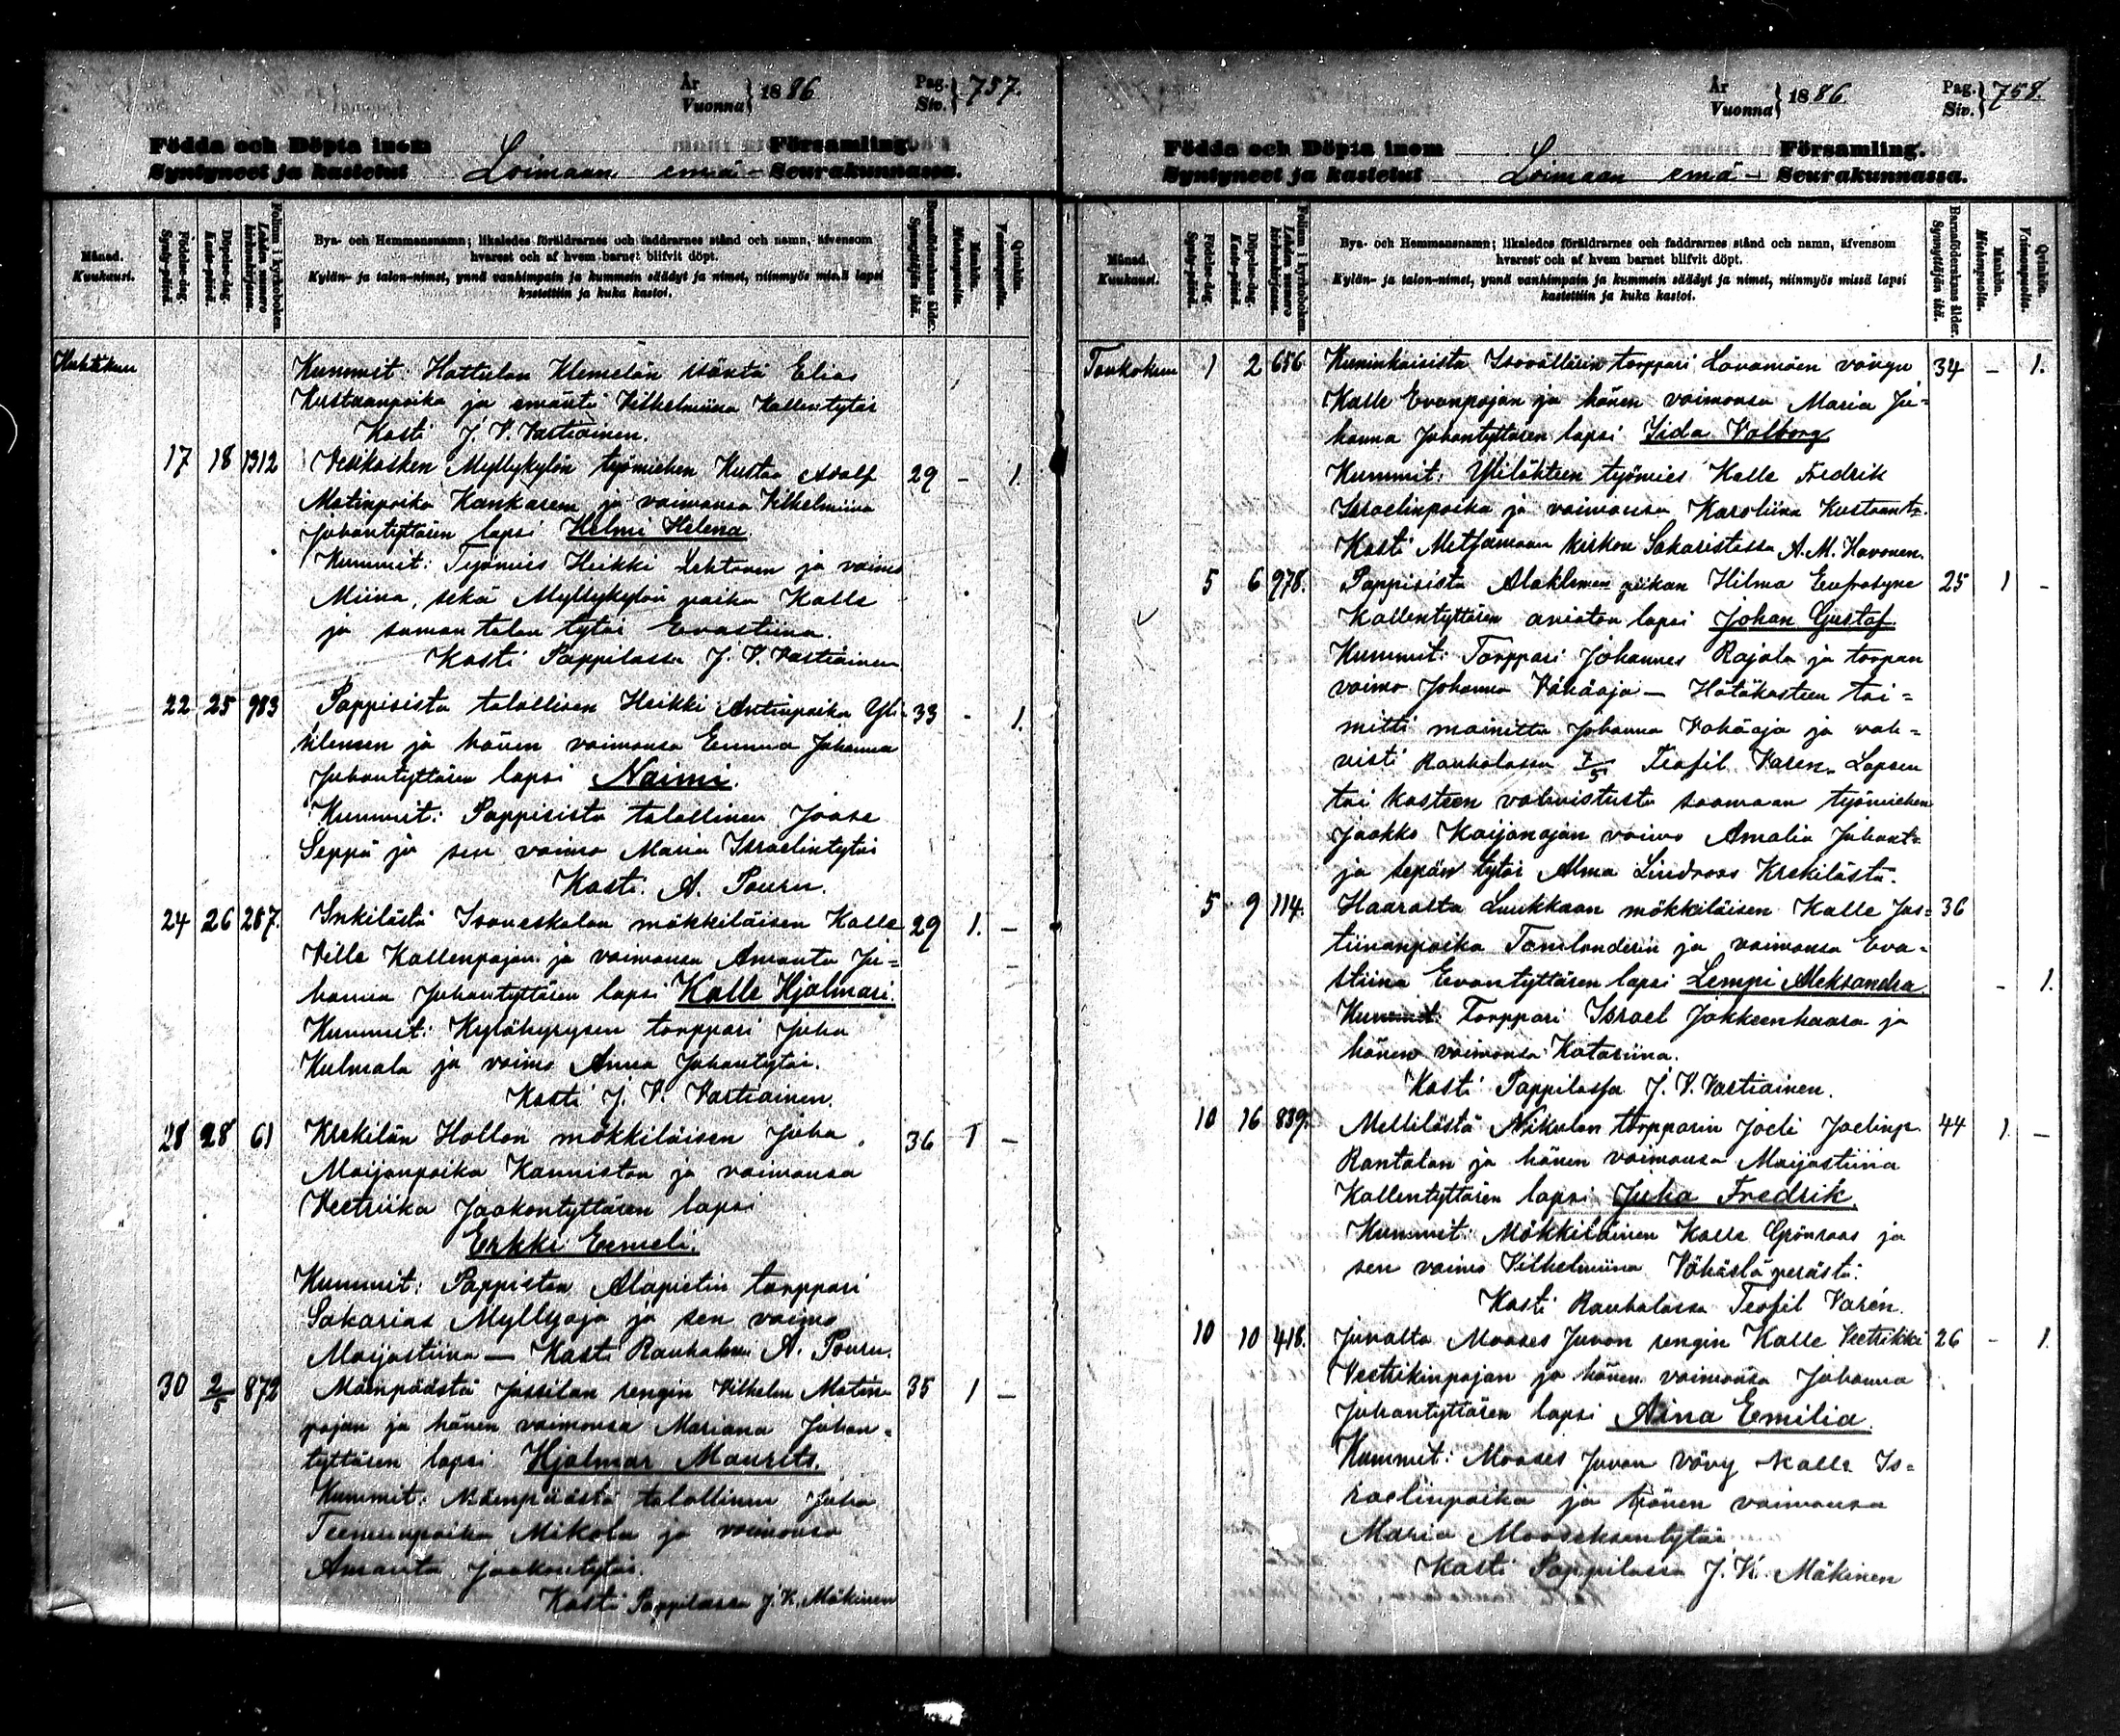 År
Vuonna } 1886
Pag.
Siv. } 757.
Födda och Döpta inom Församling.
Syntyneet ja kastetut Loimaan emä- Seurakunnassa.
Månad.
Kuukausi.
Födelse-dag.
Synty-päivä.
Döpelse-dag.
Kaste-päivä.
Folium i kyrkoboken.
Lehden numero kirkonkirjassa.
Bya- och Hemmansnamn; likaledes föräldrarnes och faddrarnes stånd och namn, äfvensom
hvarest och af hvem barnet blifvit döpt.
Kylän- ja talon-nimet, ynnä vanhimpain ja kummein säädyt ja nimet, niinmyös missä lapsi
kastettiin ja kuka kastoi.
Barnaföderskans ålder.
Synnyttäjän ikä.
Mankön.
Miehenpuolia.
Qvinkön.
Vaimonpuolia.
Huhtikuu
Kummit: Hattulan Klemelän isäntä Elias
Kustaanpoika ja emäntä Vilhelmiina Kallentytär
Kasti J. V. Vartiainen.
17 18 1312 Vesikosken Myllykylän työmiehen Kustaa Adolf 29 - 1.
Matinpoika Kankareen ja vaimonsa Vilhelmiina
Juhontyttären lapsi Helmi Helena
Kummit: Työmies Heikki Lehtonen ja vaimo
Miina, sekä Myllykylän poika Kalle
ja saman talon tytär Evastiina.
Kasti Pappilassa J. V. Vartiainen
22 25 983 Pappisista talollisen Heikki Antinpoika Yli- 33 - 1.
kilensen ja hänen vaimonsa Emma Johanna
Juhontyttären lapsi Naimi.
Kummit: Pappisista talollinen Joose
Seppä ja sen vaimo Maria Israelintytär
Kasti A. Pouru.
24 26 287. Inkilästä Isoneskalan mökkiläisen Kalle 29 1. -
Ville Kallenpojan ja vaimonsa Amanta Jo-
hanna Juhontyttären lapsi Kalle Hjalmari.
Kummit: Kyläkyrysen torppari Juha
Kulmala ja vaimo Anna Juhontytär.
Kasti J. V. Vartiainen.
28 28 61 Krekilän Hollon mökkiläisen Juha 36 1 -
Maijanpoika Kanniston ja vaimonsa
Veetriika Jaakontyttären lapsi
Erkki Eemeli.
Kummit: Pappisten Alapietin torppari
Sakarias Myllyoja ja sen vaimo
Maijastiina — Kasti Rauhalassa A. Pouru.
30 2/5 872 Mänpäästä Jussilan rengin Vilhelm Matin- 35 1 -
pojan ja hänen vaimonsa Mariana Johan-
tyttären lapsi Hjalmar Maurits.
Kummit: Mäenpäästä talollinen Juha
Mikola ja vaimonsa
Amanta Jaakontytär.
Kasti Pappilassa J. K. Mäkinen
År
Vuonna } 1886.
Pag.
Siv. } 758.
Födda och Döpta inom Församling.
Syntyneet ja kastetut Loimaan emä- Seurakunnassa.
Månad.
Kuukausi.
Födelse-dag.
Synty-päivä.
Döpelse-dag.
Kaste-päivä.
Folium i kyrkoboken.
Lehden numero kirkonkirjassa.
Bya- och Hemmansnamn; likaledes föräldrarnes och faddrarnes stånd och namn, äfvensom
hvarest och af hvem barnet blifvit döpt.
Kylän- ja talon-nimet, ynnä vanhimpain ja kummein säädyt ja nimet, niinmyös missä lapsi
kastettiin ja kuka kastoi.
Barnaföderskans ålder.
Synnyttäjän ikä.
Mankön.
Miehenpuolia.
Qvinkön.
Vaimonpuolia.
Toukokuu 1 2 656 Kuninkaisista Isovällärin torppari Lavamäen vävyn 34 - 1.
Kalle Evanpojan ja hänen vaimonsa Maria Jo-
hanna Juhontyttären lapsi Iida Valborg
Kummit: Ylilähteen työmies Kalle Fredrik
Israelinpoika ja vaimonsa Karoliina Kustaant.
Kasti Metsämaan kirkon Sakaristossa A. M. Havonen.
5 6 978. Pappisista Alaklemen piikan Hilma Eufrosyne 25 1 -
Kallentyttären aviotan lapsi Johan Gustaf
Kummit: Torppari Johannes Rajala ja torpan
vaimo Johanna Vähäoja — Hätäkasteen toi-
mitti mainittu Johanna Vähäoja ja vah-
visti Rauhalassa 7/5 Teofil Varén. Lapsen
toi kasteen vahvistusta saamaan työmiehen
Jaakko Kaijanojan vaimo Amalia Juhont.
ja sepän tytär Alma Lindroos Krekilästä.
5 9 114. Haaralta Luukkaan mökkiläisen Kalle Jus- 36
tiinanpoika Tamlanderin ja vaimonsa Eva-
stiina Evantyttären lapsi Lempi Aleksandra. - 1.
Kummit: Torppari Israel Jokkeenhaara ja
hänen vaimonsa Katariina.
Kasti Pappilassa J. V. Vartiainen.
10 16 839. Mellilästä Nikulan torpparin Joeli Joelinp. 44 1 -
Rantalan ja hänen vaimonsa Maijastiina
Kallentyttären lapsi Juha Fredrik.
Kummit: Mökkiläinen Kalle Grönroos ja
sen vaimo Vilhelmiina Vähästäperästä.
Kasti Rauhalassa Teofil Varén.
10 10 418. Juvalta Mooses Juvan rengin Kalle Veetrikki 26 - 1.
Veetrikinpojan ja hänen vaimonsa Johanna
Juhontyttären lapsi Aina Emilia.
Kummit: Mooses Juvan vävy Kalle Is-
raelinpoika ja hänen vaimonsa
Maria Mooseksentytär
Kasti Pappilassa J. K. Mäkinen